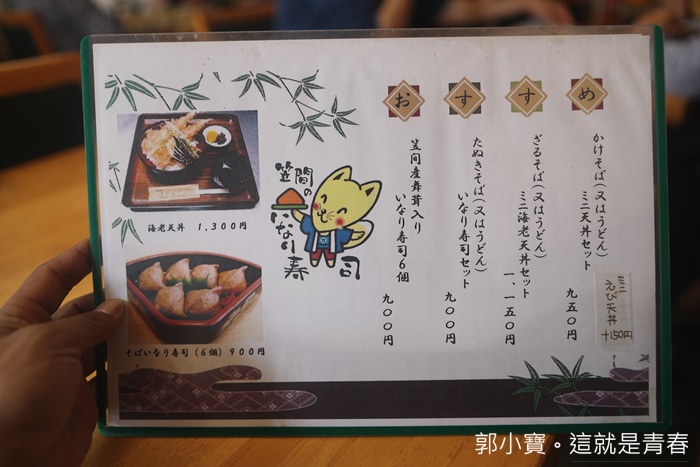 おすすめ
かけそば(又はうどん)
ミニ天丼セット
九五〇円
ミニ
えび天丼
+150円
ざるそば(又はうどん)
ミニ海老天丼セット
一、一五〇円
たぬきそば(又はうどん)
いなり寿司セット
九〇〇円
笠间産舞茸入り
いなり寿司6個
九〇〇円
笠間の
いなり寿司
海老天丼 1,300円
そばいなり寿司(6個)900円
郭小寶。這就是青春